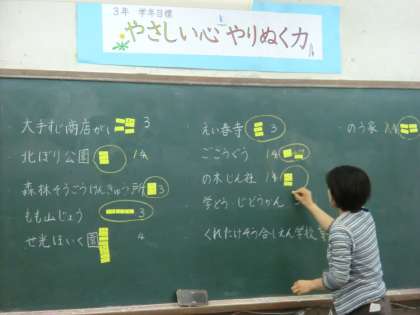 ３年 学年目標
やさしい心 やりぬく力
大手すじ商店がい 3
北ぼり公園 14
森林そうごうけんきゅう所 3
もも山じょう 3
せ光ほいく園 4
えい春寺 3
ごこうぐう 14
の木じん社 14
学どう・じどうかん
くれたけそう合しえん学校
のう家